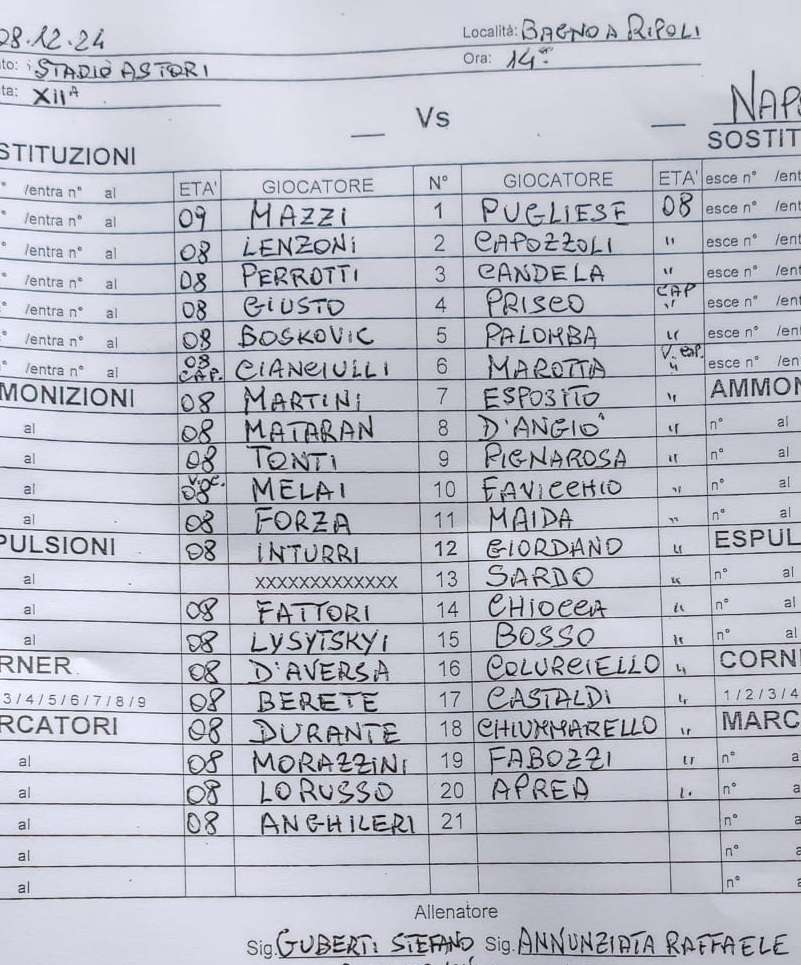 08.12.24 Località: BAGNO A RIPOLI
to: STADIO ASTORI Ora: 14ª
ta: XIIª
__ Vs __ NAP
STITUZIONI SOSTIT
° /entra n° al ETA' GIOCATORE N° GIOCATORE ETA' esce n° /ent
° /entra n° al 09 MAZZI 1 PUGLIESE 08 esce n° /ent
° /entra n° al 08 LENZONI 2 CAPOZZOLI " esce n° /ent
° /entra n° al 08 PERROTTI 3 CANDELA " esce n° /ent
° /entra n° al 08 GIUSTO 4 PRISCO CAP " esce n° /ent
° /entra n° al 08 BOSKOVIC 5 PALOMBA " esce n° /ent
° /entra n° al 08 CAP. CIANCIULLI 6 MAROTTA V. CAP. " esce n° /en
MONIZIONI 08 MARTINI 7 ESPOSITO " AMMON
al 08 MATARAN 8 D'ANGIO' " n° al
al 08 TONTI 9 PIGNAROSA " n° al
al 08 MELAI 10 FAVICCHIO " n° al
al 08 FORZA 11 MAIDA " n° al
PULSIONI 08 INTURRI 12 GIORDANO " ESPUL
al XXXXXXXXXXXXX 13 SARDO " n° al
al 08 FATTORI 14 CHIOCCA " n° al
al 08 LYSYTSKYI 15 BOSSO " n° al
RNER 08 D'AVERSA 16 COLURCIELLO " CORN
3 / 4 / 5 / 6 / 7 / 8 / 9 08 BERETE 17 CASTALDI " 1 / 2 / 3 / 4
RCATORI 08 DURANTE 18 CHIUMMARELLO " MARC
al 08 MORAZZINI 19 FABOZZI " n° a
al 08 LORUSSO 20 APREA " n° a
al 08 ANGHILERI 21 n° a
al n° a
al n° a
Allenatore
Sig. GUBERTI STEFANO Sig. ANNUNZIATA RAFFAELE